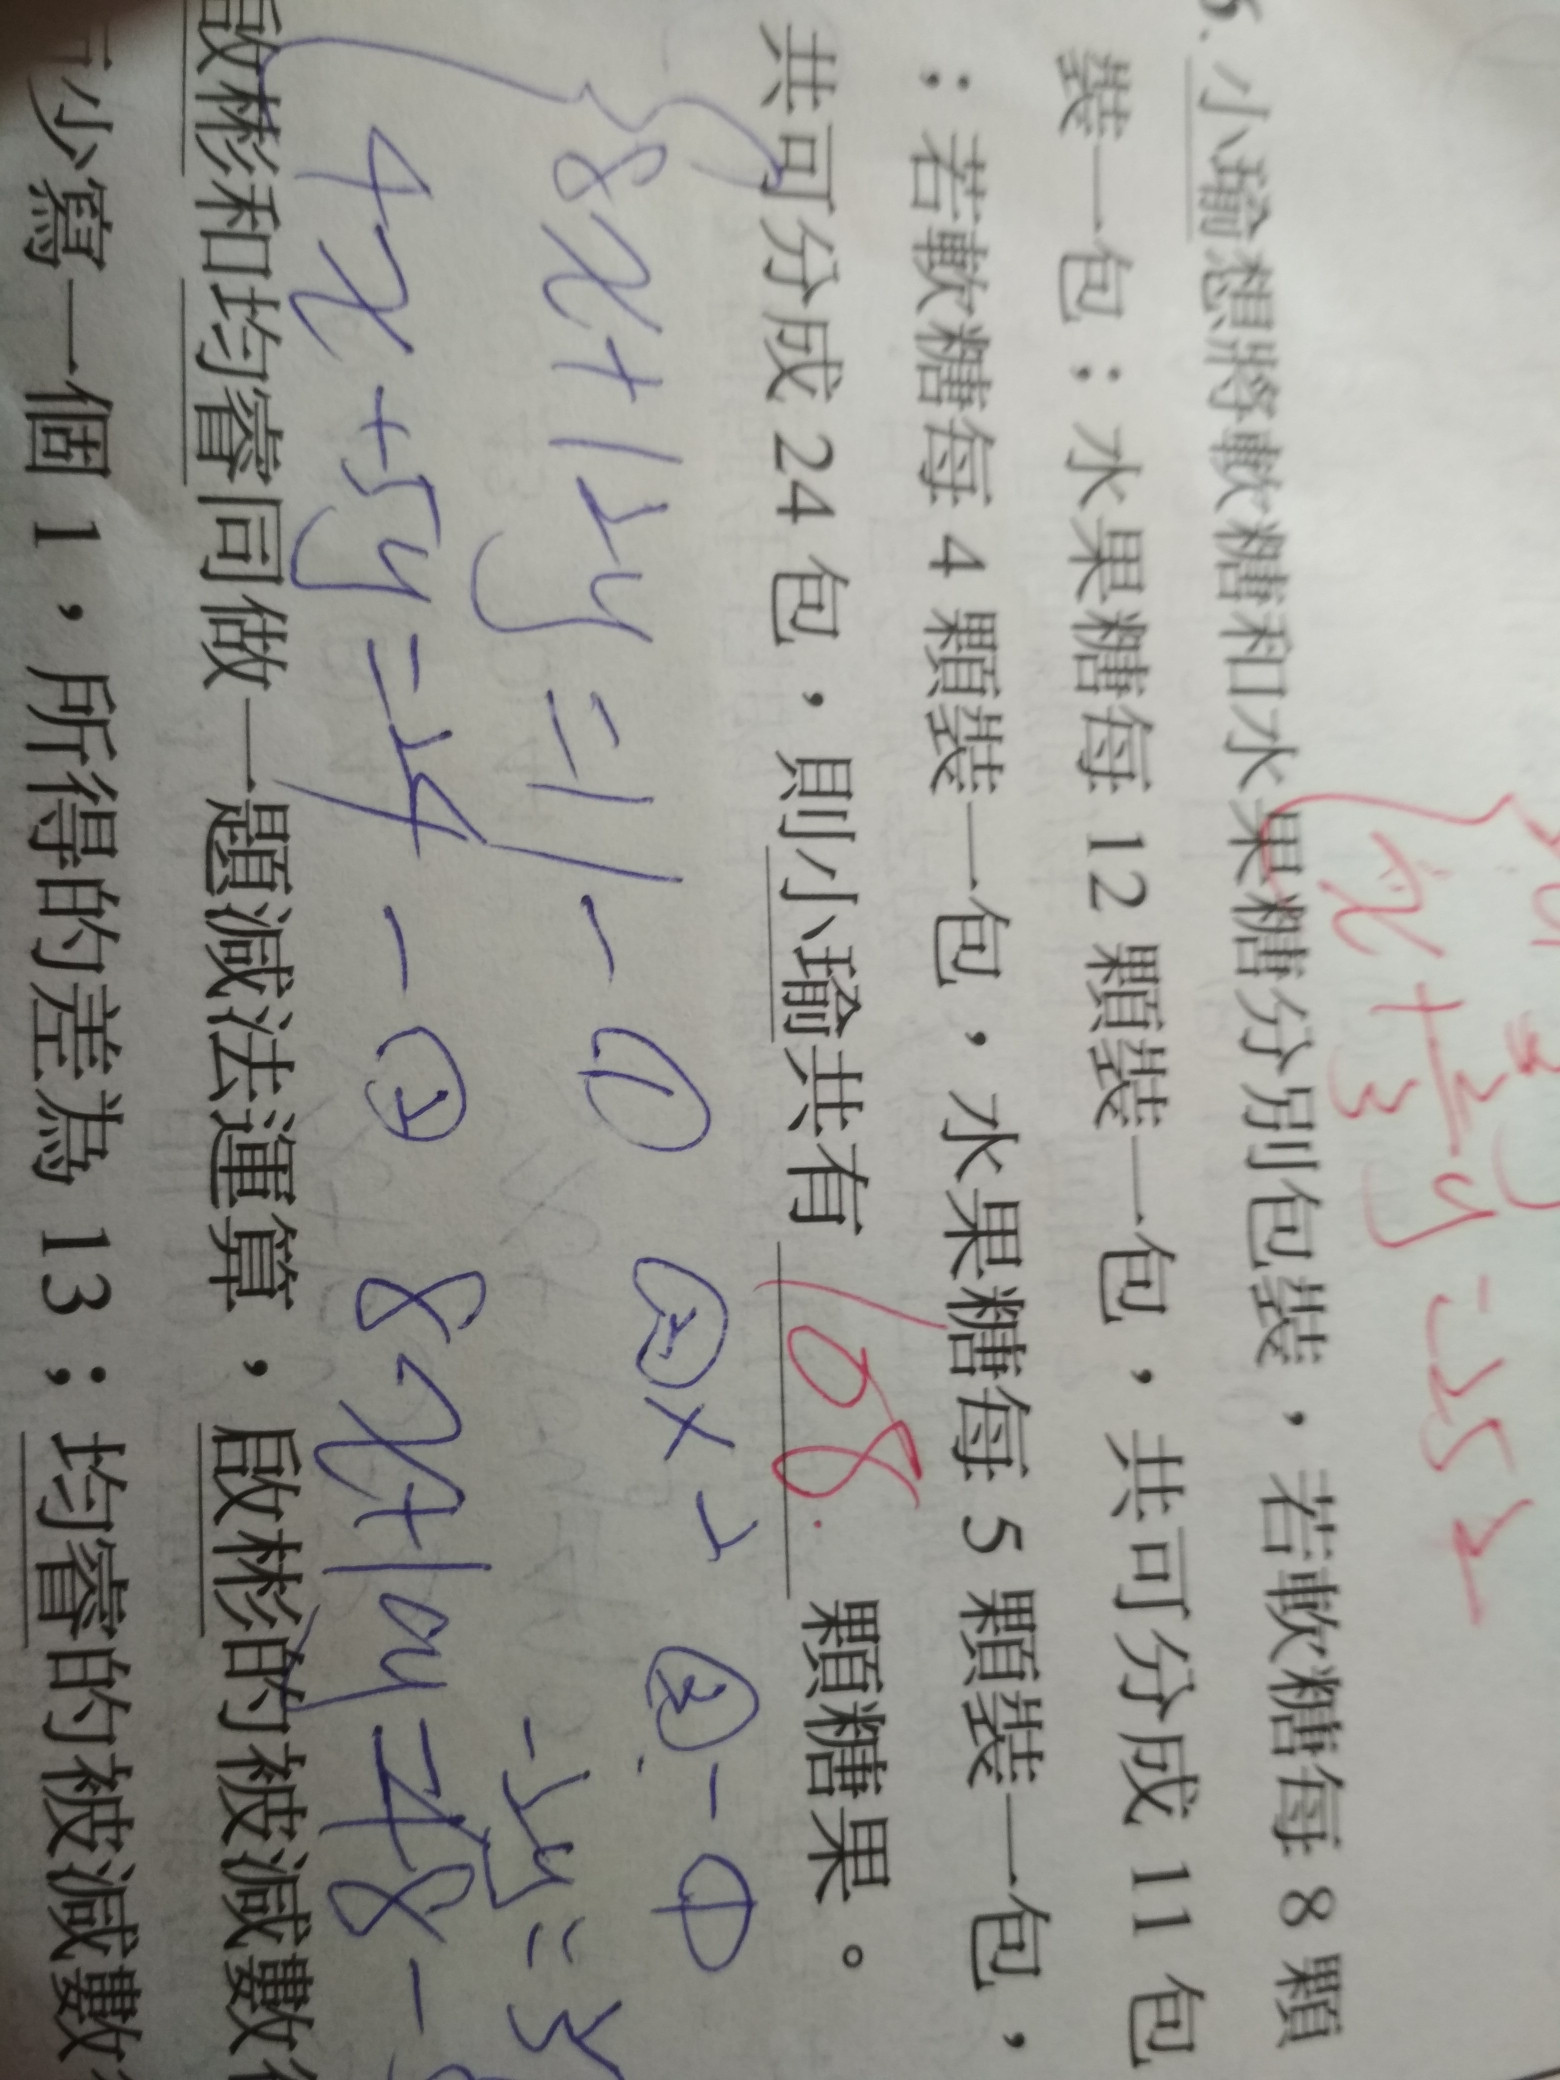 x + 2/3 y = 252
小瑜想將軟糖和水果糖分別包裝，若軟糖每 8 顆
裝一包；水果糖每 12 顆裝一包，共可分成 11 包
；若軟糖每 4 顆裝一包，水果糖每 5 顆裝一包，
共可分成 24 包，則小瑜共有 108 顆糖果。
8x+12y=11-① ②×2 ③-①
4x+5y=24-② 8x+10y=48-
-2y=3
啟彬和均睿同做一題減法運算，啟彬的被減數
少寫一個 1，所得的差為 13；均睿的被減數